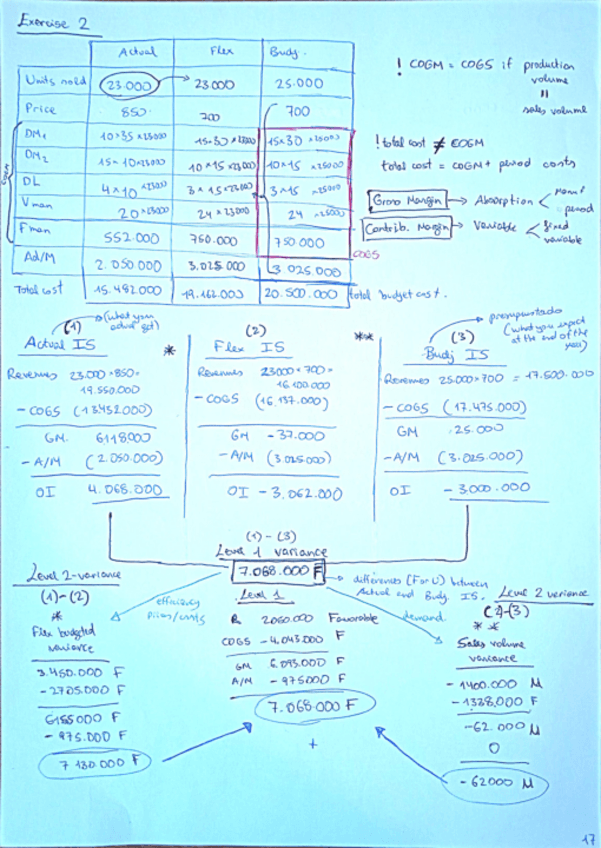 Exercise 2
Actual Flex Budj.
Units sold 23.000 23.000 25.000
Price 850. 700 700
DM1 10×35 ×23000 15×30 ×23000 15×30 ×25000
DM2 15×10×23000 10×15 ×23000 10×15 ×25000
DL 4×10 ×23000 3×15×23000 3×15 ×25000
Vman 20×23000 24×23000 24 ×25000
Fman 552.000 750.000 750000
COGS
Ad/M 2.050.000 3.025.000 3 025.000
Total cost 15.482.000 19.162.000 20.500.000 total budget cost.
! COGM = COGS if production
volume
=
sales volume
! total cost ≠ COGM
total cost = COGM + period costs
Gross Margin → Absorption < Manuf
period
Contrib. Margin → Variable < fixed
variable
(1) (what you
actual get)
Actual IS *
Revenues 23.000×850=
19.550.000
- COGS (13.432000)
GM. 6118000
- A/M (2.050.000)
OI 4.068.000
(2)
Flex IS **
Revenues 23000×700=
16.100.000
- COGS (16.137.000)
GM -37.000
- A/M (3.025.000)
OI -3.062.000
(3) presupuestado
(what you expect
at the end of the
year)
Budj IS
Revenues 25.000×700 = 17.500.000
- COGS (17.475.000)
GM 25.000
- A/M (3.025.000)
OI -3.000.000
(1)-(3)
Level 1 variance
7.068.000 F
differences (F or U) between
Actual and Budj. IS.
Level 2-variance
(1)-(2)
*
efficiency
prices/units
Flex budgeted
variance
3.450.000 F
-2705.000 F
6155000 F
-975.000 F
7 130.000 F
Level 1
R 2050.000 Favorable
COGS -4.043.000 F
GM 6.093.000 F
A/M -975000 F
7.068.000 F
+
demand.
Level 2 variance
(2)-(3)
**
Sales volume
variance
-1400.000 M
-1338,000 F
-62.000 M
0
-62000 M
17